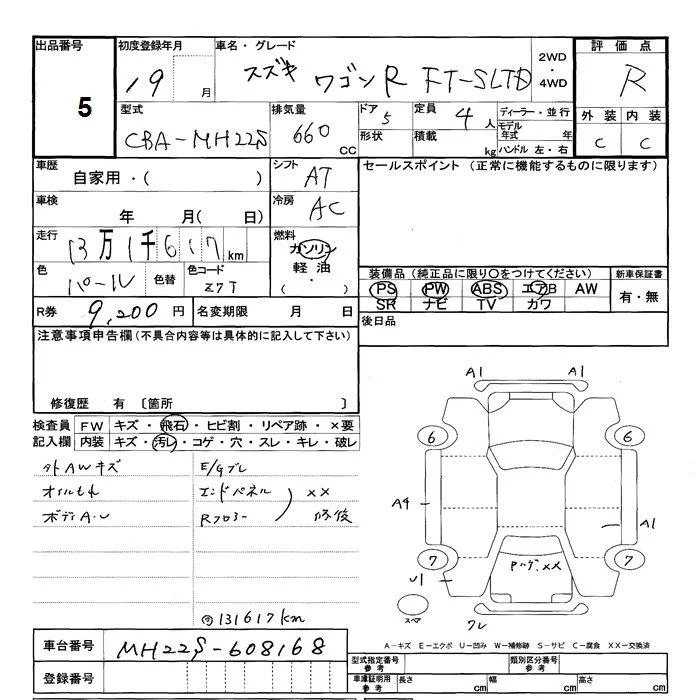 出品番号 5
初度登録年月 19 月
車名・グレード スズキ ワゴンR FT-SLTD
2WD ・ 4WD
評価点 R
外装 内装
C C
型式 CBA-MH22S
排気量 660 CC
ドア 5
形状
定員 4 人
積載 kg
ディーラー・並行
モデル年式 年
ハンドル 左・右
車歴 自家用・( )
シフト AT
セールスポイント (正常に機能するものに限ります)
車検 年 月( 日)
冷房 AC
走行 13万1千617km
燃料 ガソリン
軽油
・( )
色 パール 色替 色コード Z7T
装備品 (純正品に限り○をつけてください)
新車保証書
PS PW ABS エアB AW
有・無
SR ナビ TV カワ
R券 9,200 円 名変期限 月 日
後日品
注意事項申告欄(不具合内容等は具体的に記入して下さい)
修復歴 有 〔箇所 〕
検査員記入欄
FW キズ・飛石・ヒビ割・リペア跡・×要
内装 キズ・汚レ・コゲ・穴・スレ・キレ・破レ
外AWキズ
オイルもれ
ボディA・U
E/Gブレ
エンドパネル
Rフロアー
××
修復
131617km
A1 A1
6 6
A4 A1
7 7
U1
Pハゲ××
スペア
クレ
車台番号 MH22S-608168
登録番号
A-キズ E-エクボ U-凹み W-補修跡 S-サビ C-腐食 XX-交換済
型式指定番号 参考
類別区分番号 参考
車庫証明用 参考 長さ cm 幅 cm 高さ cm